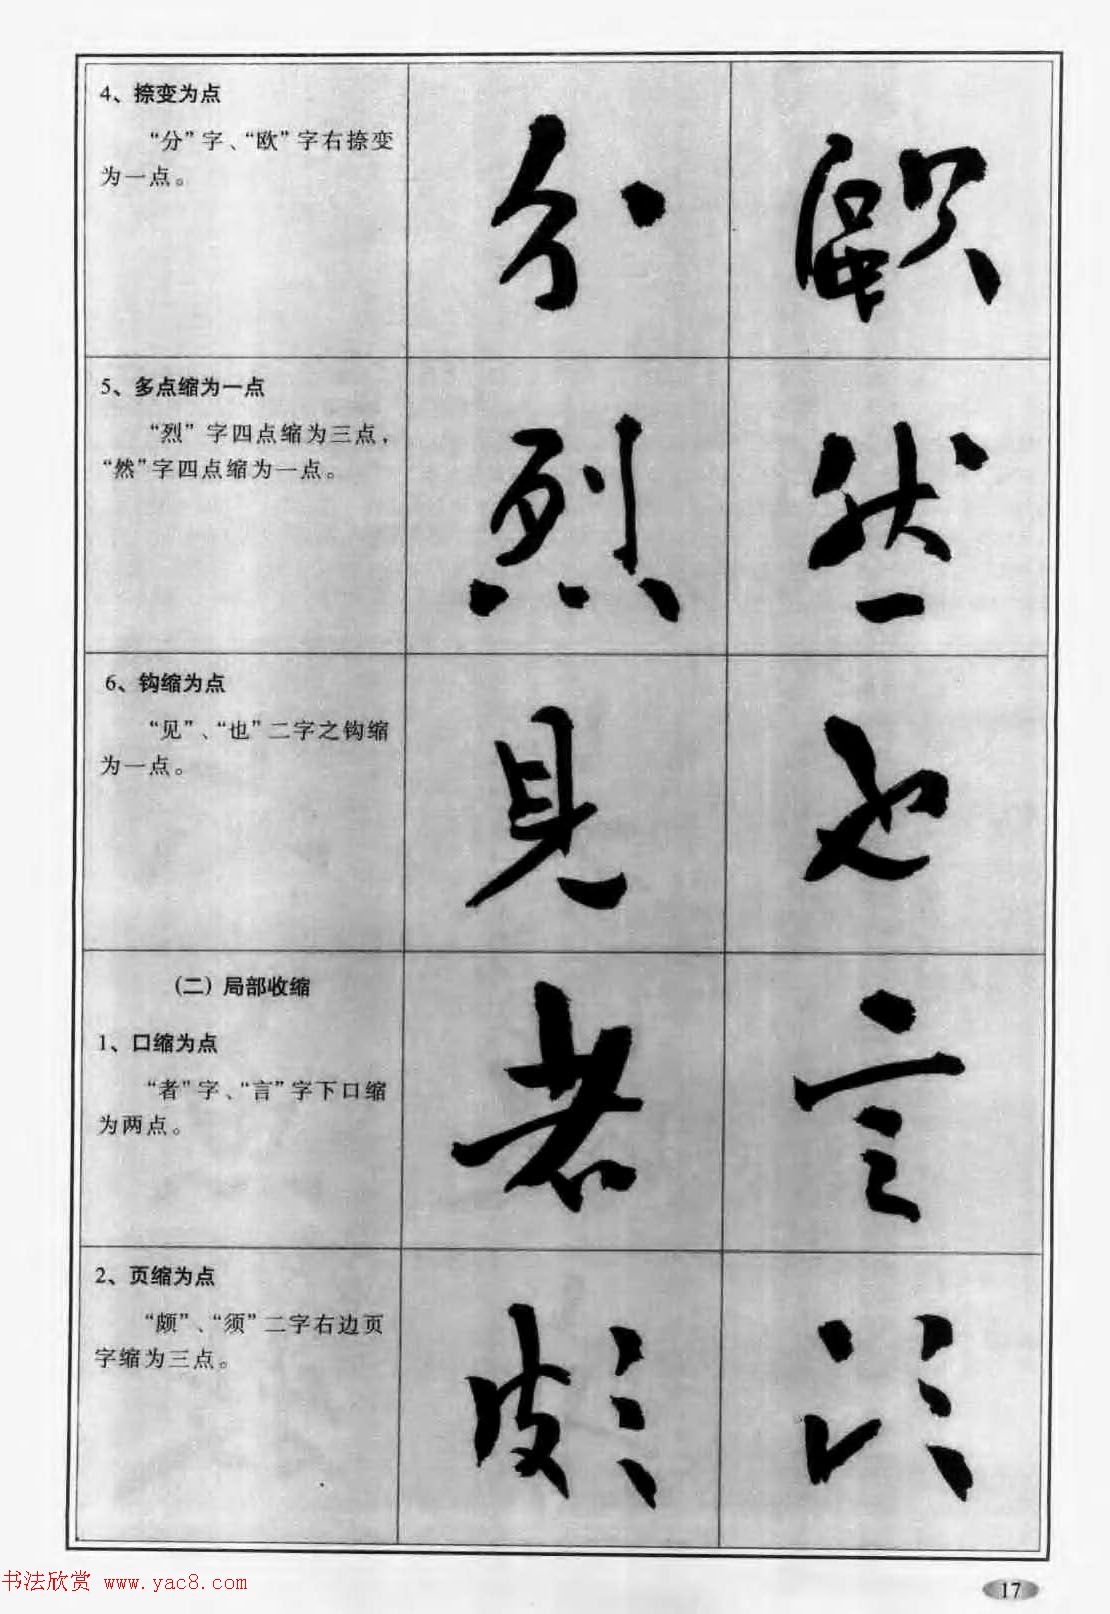 4、捺变为点
“分”字、“欧”字右捺变
为一点。
分 歐
5、多点缩为一点
“烈”字四点缩为三点，
“然”字四点缩为一点。
烈 然
6、钩缩为点
“见”、“也”二字之钩缩
为一点。
見 也
(二) 局部收缩
1、口缩为点
“者”字、“言”字下口缩
为两点。
者 言
2、页缩为点
“颇”、“须”二字右边页
字缩为三点。
頗 須
书法欣赏 www.yac8.com
17